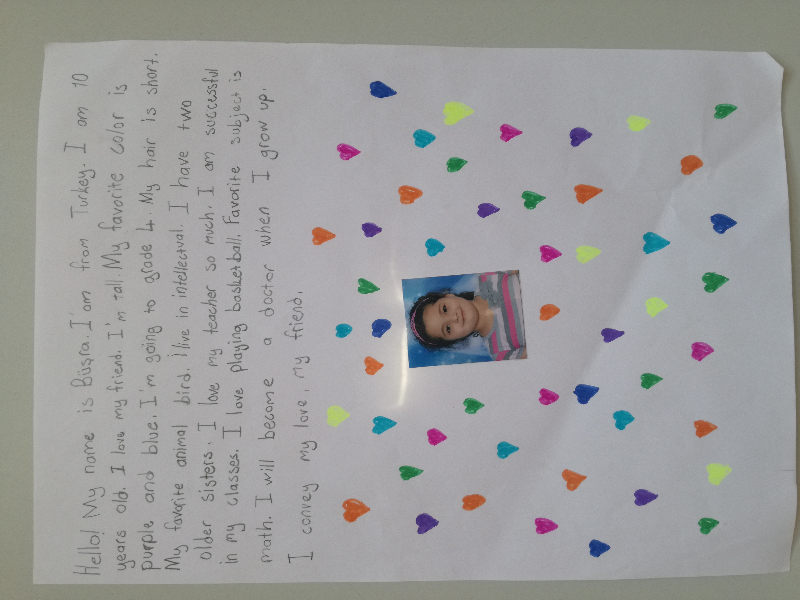 Hello! My name is Büşra. I'am from Turkey. I am 10
years old. I love my friend. I'm tall. My favorite color is
purple and blue. I'm going to grade 4. My hair is short.
My favorite animal bird. I live in intellectual. I have two
older sisters. I love my teacher so much. I am successful
in my classes. I love playing basketball. Favorite subject is
math. I will become a doctor when I grow up.
I convey my love, my friend.